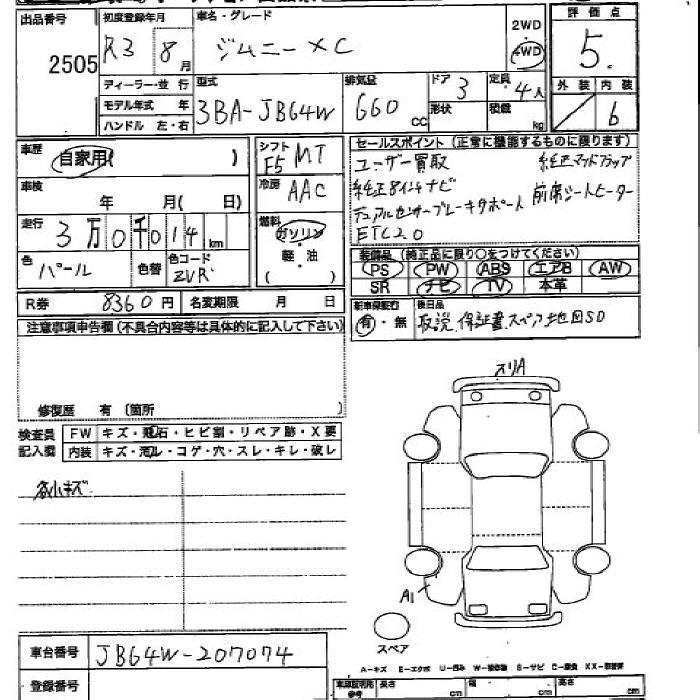 出品番号 2505
初度登録年月 R3 8月
車名・グレード ジムニー XC
2WD
4WD
評価点 5.
外装 内装 6
ディーラー・並行
モデル年式 年
ハンドル 左・右
型式 3BA-JB64W
排気量 660 cc
ドア 3
形状
定員 4人
積載 kg
車歴 自家用( )
シフト F5 MT
車検 年 月(日)
冷房 AAC
走行 3万0千014km
燃料 ガソリン
軽・油
( )
色 パール
色替
色コード ZVR
R券 8360円 名変期限 月 日
セールスポイント (正常に機能するものに限ります)
ユーザー買取 純正マッドフラップ
純正8インチナビ 前席シートヒーター
デュアルセンサーブレーキサポート
ETC2.0
装備品 (純正品に限り○をつけてください)
PS PW ABS エアB AW
SR ナビ TV 本革
新車保証書
有・無
後日品
取説、保証書、スペア、地図SD
注意事項申告欄 (不具合内容等は具体的に記入して下さい)
修復歴 有 〔箇所
検査員
記入欄
FW キズ・飛石・ヒビ割・リペア跡・X要
内装 キズ・汚ル・コゲ・穴・スレ・キレ・破レ
各小キズ
ズリA
A1
スペア
車台番号 JB64W-207074
登録番号
A-キズ E-エクボ U-凹み W-補修跡 S-サビ C-腐食 XX-交換済
参考
長さ cm
幅 cm
高さ cm